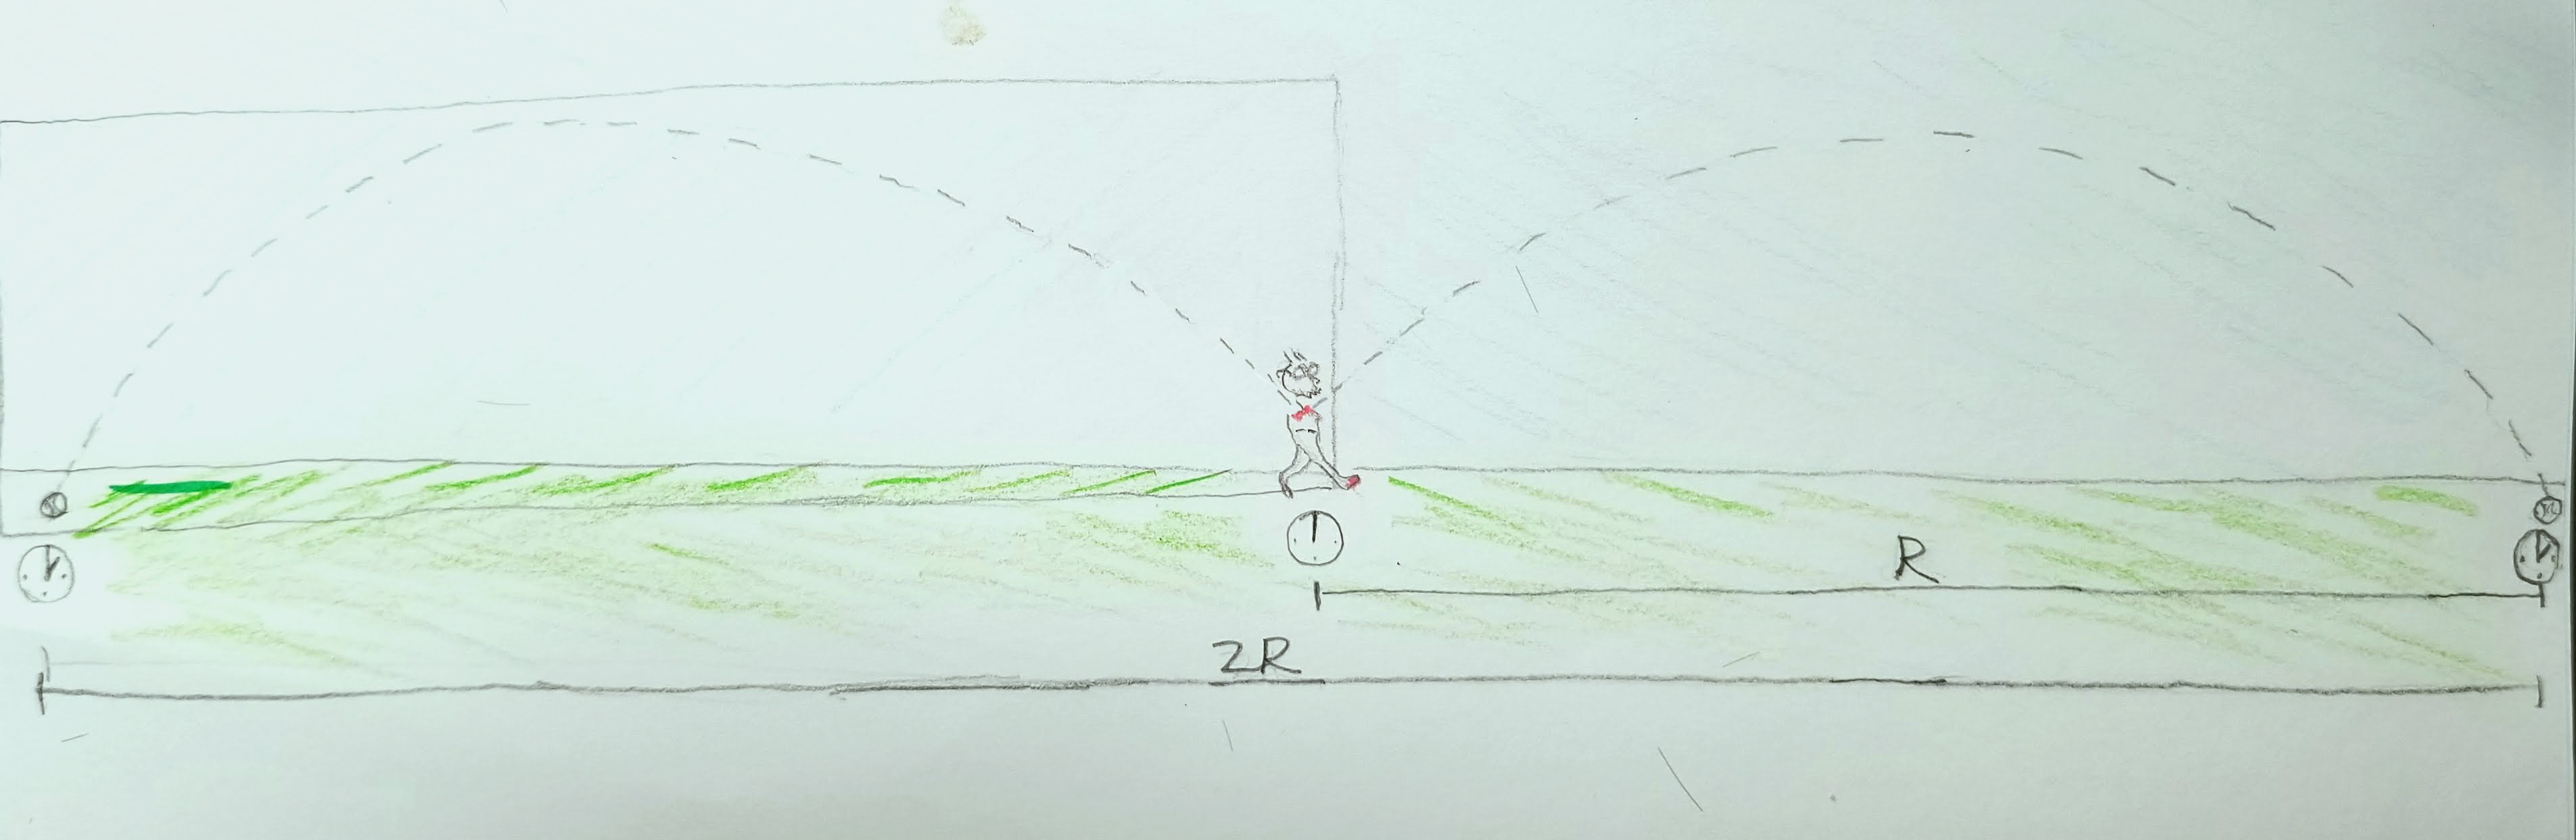 R
2R